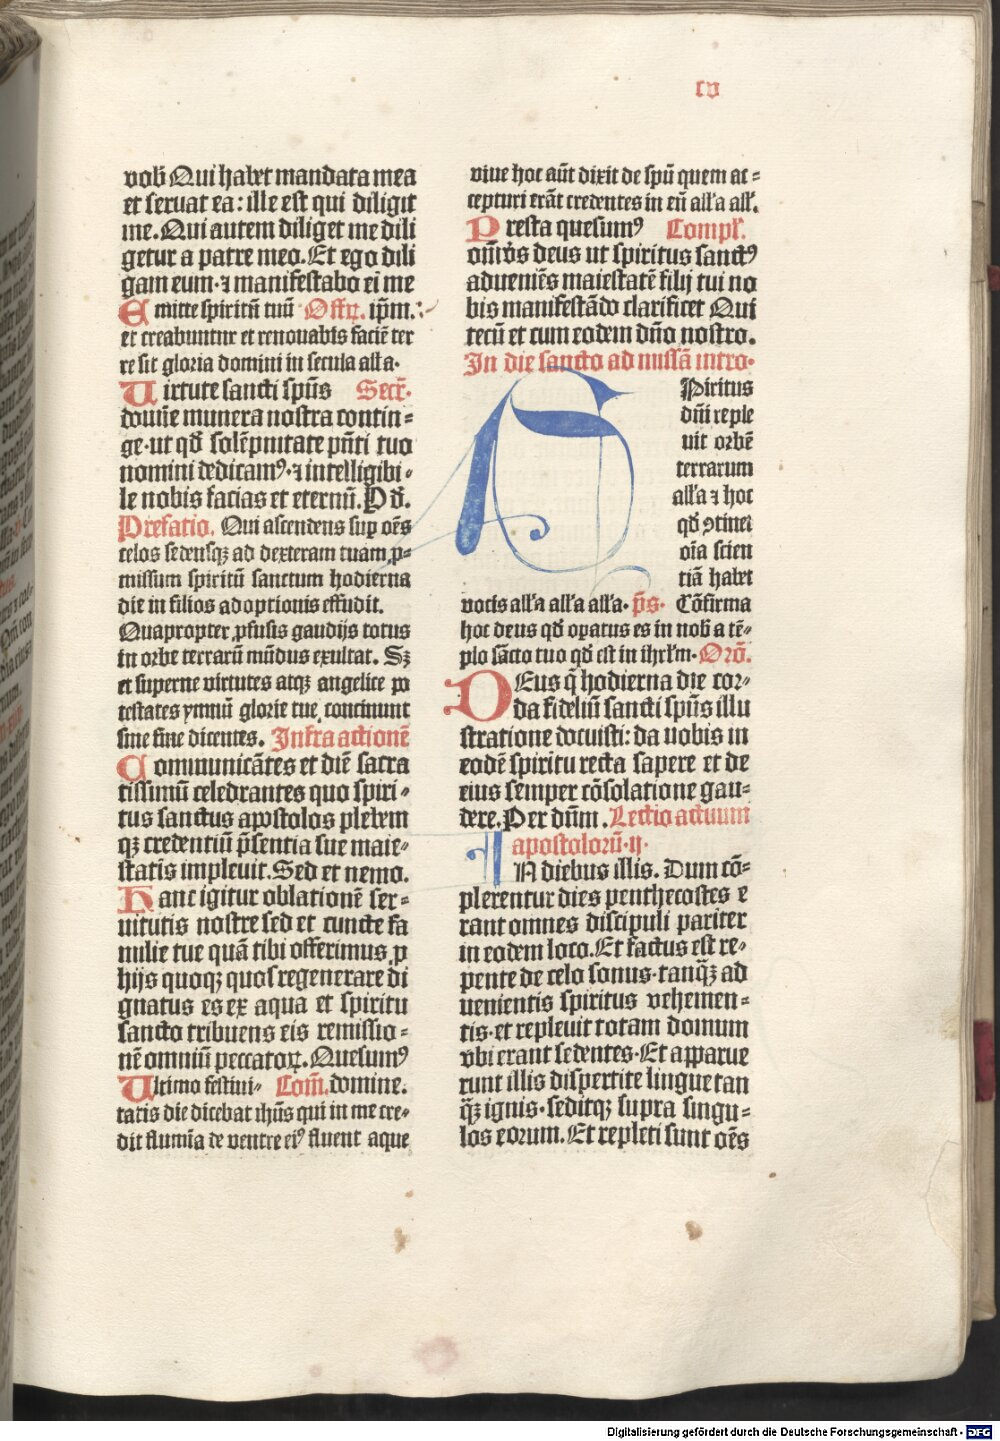 cv
vob̄ Qui habet mandata mea
et seruat ea: ille est qui diligit
me. Qui autem diliget me dili
getur a patre meo. Et ego dili
gam eum. ⁊ manifestabo ei me
Emitte spiritū tuū Offꝛ. ip̄m.
et creabuntur et renouabis faciē ter
re sit gloria domini in secula all'a.
Uirtute sancti sp̄us Secr̄.
douīe munera nostra contin⸗
ge. ut qd̄ solēpnitate p̄nti tuo
nomini dedicamꝰ. ⁊ intelligibi⸗
le nobis facias et eternū. P d̄.
Prefatio. Qui ascendens sup oēs
celos sedensqꝫ ad dexteram tuam ꝓ⸗
missum spiritū sanctum hodierna
die in filios adoptionis effudit.
Quapropter ꝓfusis gaudijs totus
in orbe terrarū mūdus exultat. Sꝫ
et superne virtutes atqꝫ angelice po
testates ymnū glorie tue concinunt
sine fine dicentes. Infra actionē
Communicātes et diē sacra
tissimū celebrantes quo spiri⸗
tus sanctus apostolos plebem
qꝫ credentiū p̄sentia sue maie⸗
statis impleuit. Sed et nemo.
Hanc igitur oblationē ser⸗
uitutis nostre sed et cuncte fa
milie tue quā tibi offerimus ꝓ
hijs quoqꝫ quos regenerare di
gnatus es ex aqua et spiritu
sancto tribuens eis remissio⸗
nē omniū peccatoꝝ. Quesumꝰ
Ultimo festini⸗ Com̄. domine.
tatis die dicebat ihūs qui in me cre⸗
dit flumīa de ventre eiꝰ fluent aque
viue hoc aūt dixit de spū quem ac⸗
cepturi erāt credentes in eū all'a all'.
Presta quesumꝰ Compl'.
om̄ps deus ut spiritus sanctꝰ
adueniēs maiestatē filij tui no
bis manifestādo clarificet Qui
tecū et cum eodem dn̄o nostro.
In die sancto ad missā intro.
SPiritus
dn̄i reple
uit orbē
terrarum
all'a ⁊ hoc
qd̄ ꝯtinet
oīa scien
tiā habet
vocis all'a all'a all'a. p̄s. Cōfirma
hoc deus qd̄ opatus es in nob̄ a tē⸗
plo sācto tuo qd̄ est in ihrl'm. Orō.
DEus q̄ hodierna die cor⸗
da fideliū sancti sp̄us illu
stratione docuisti: da nobis in
eodē spiritu recta sapere et de
eius semper cōsolatione gau⸗
dere. Per dn̄m. Lectio actuum
apostolorū. ij.
IN diebus illis. Dum cō⸗
plerentur dies penthecostes e
rant omnes discipuli pariter
in eodem loco. Et factus est re⸗
pente de celo sonus. tanq̄ꝫ ad
uenientis spiritus vehemen⸗
tis. et repleuit totam domum
vbi erant sedentes. Et apparue
runt illis dispertite lingue tan
q̄ꝫ ignis. seditqꝫ supra singu⸗
los eorum. Et repleti sunt oēs
Digitalisierung gefördert durch die Deutsche Forschungsgemeinschaft - DFG